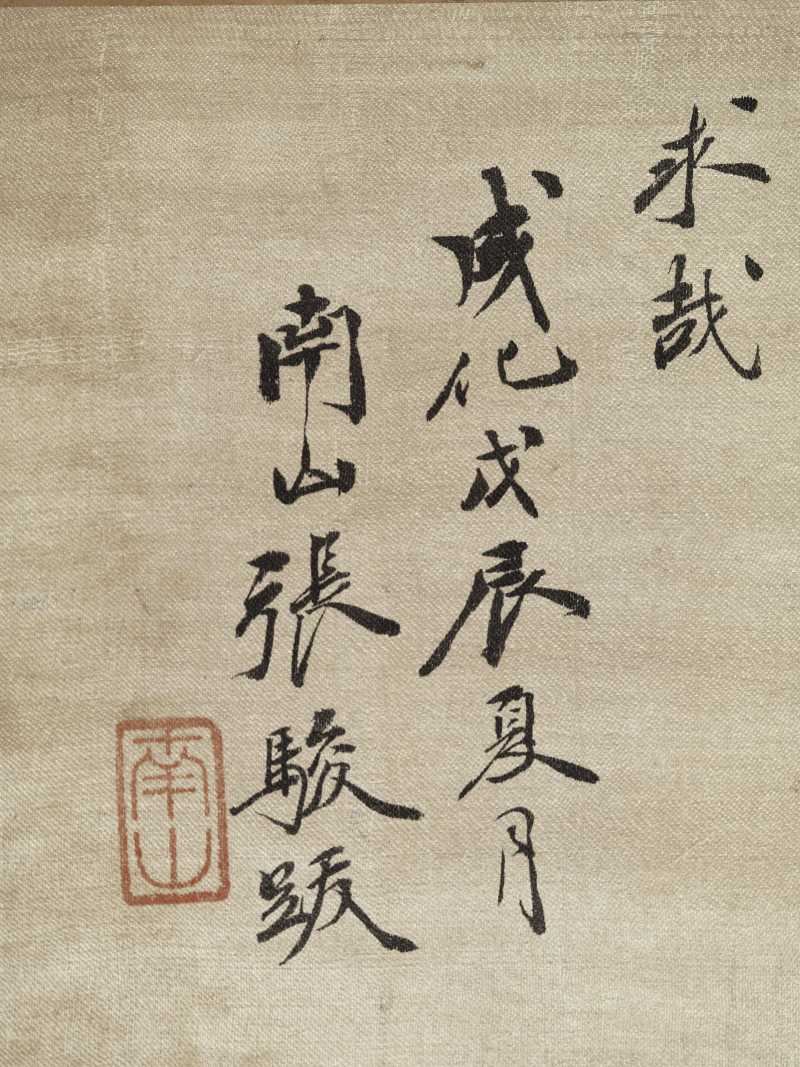 求哉
成化戊辰夏月
南山張駿跋
南山